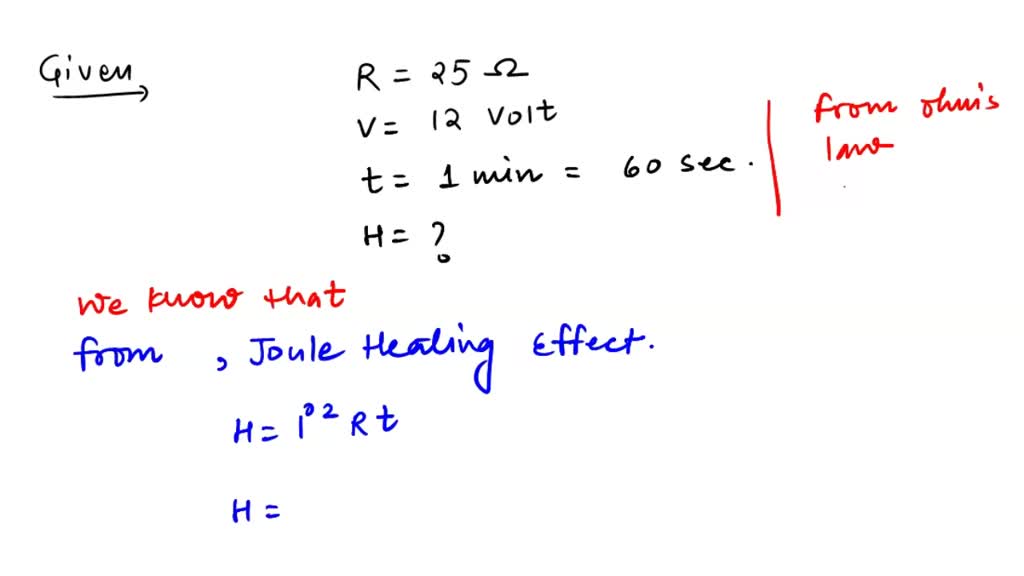 Given
R = 25 Ω
V = 12 Volt
t = 1 min = 60 sec.
H = ?
from ohm's
law
we know that
from , Joule Heating Effect.
H = i² R t
H =